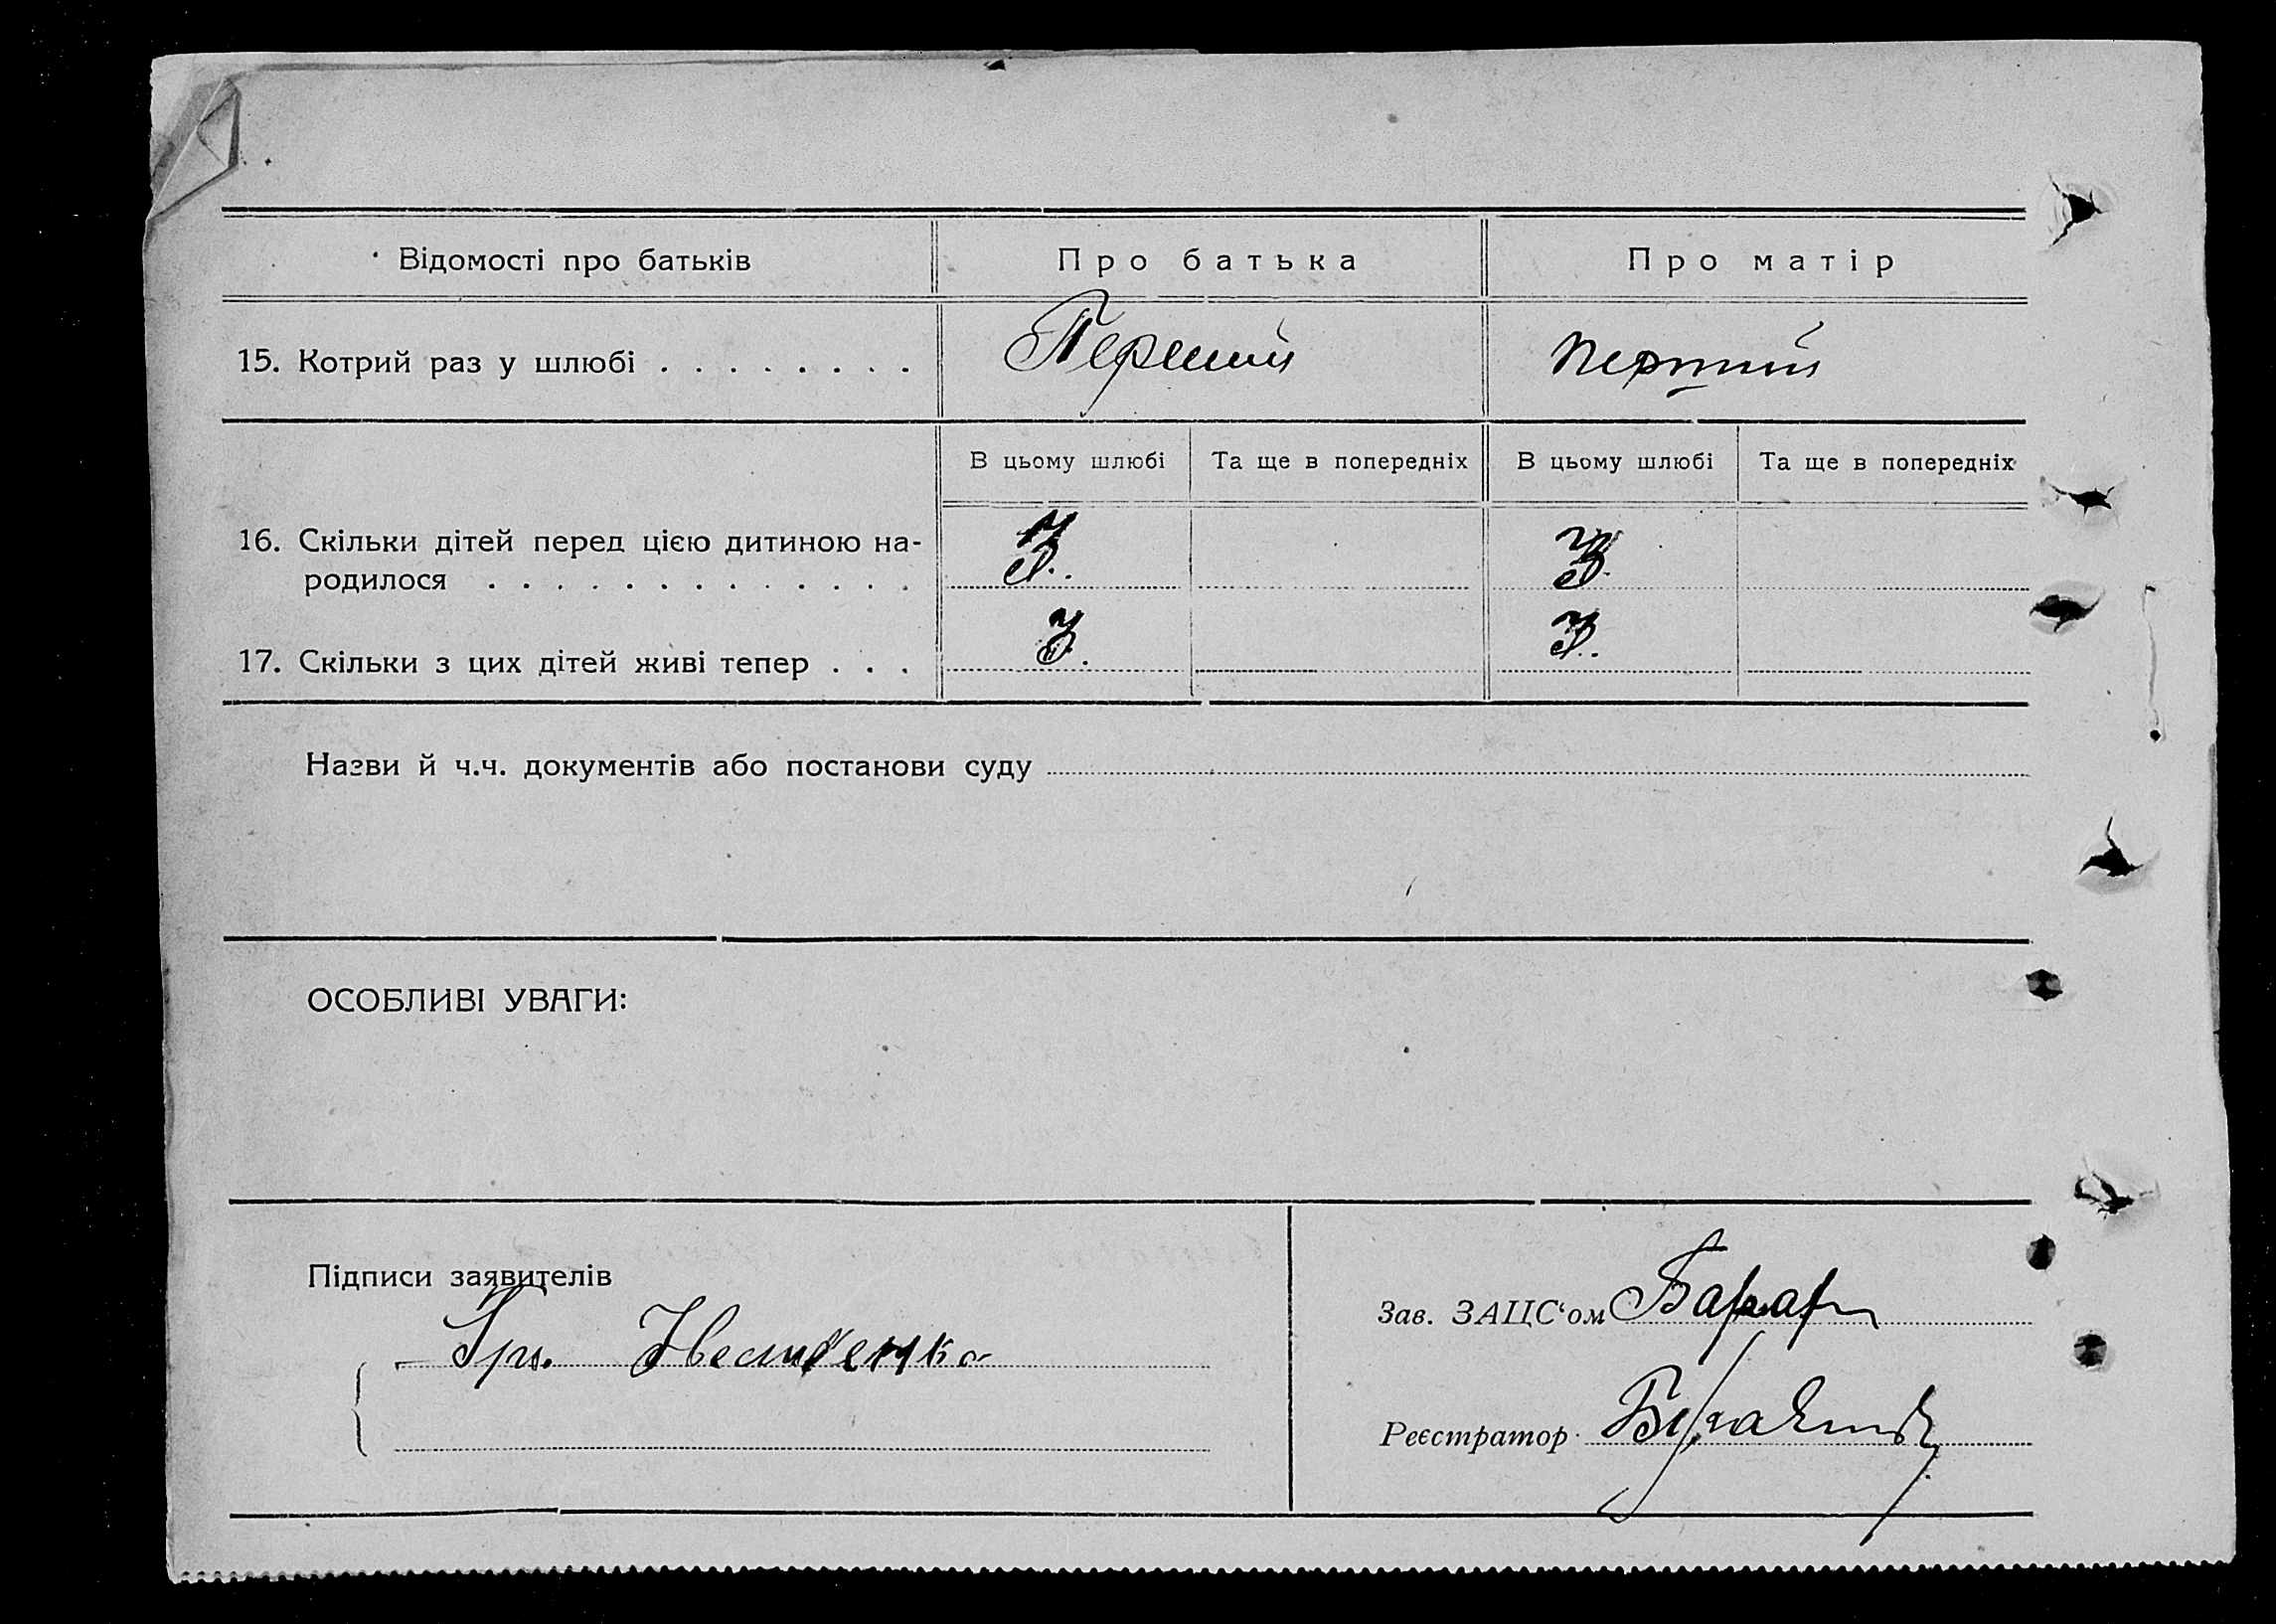 Відомості про батьків Про батька Про матір
15. Котрий раз у шлюбі . . . . . . . . Перший перший
В цьому шлюбі Та ще в попередніх В цьому шлюбі Та ще в попередніх
16. Скільки дітей перед цією дитиною на-
родилося . . . . . . . . . . . . . 3. 3.
17. Скільки з цих дітей живі тепер . . . 3. 3.
Назви й ч.ч. документів або постанови суду
ОСОБЛИВІ УВАГИ:
Підписи заявителів
Зав. ЗАЦС'ом
Реєстратор